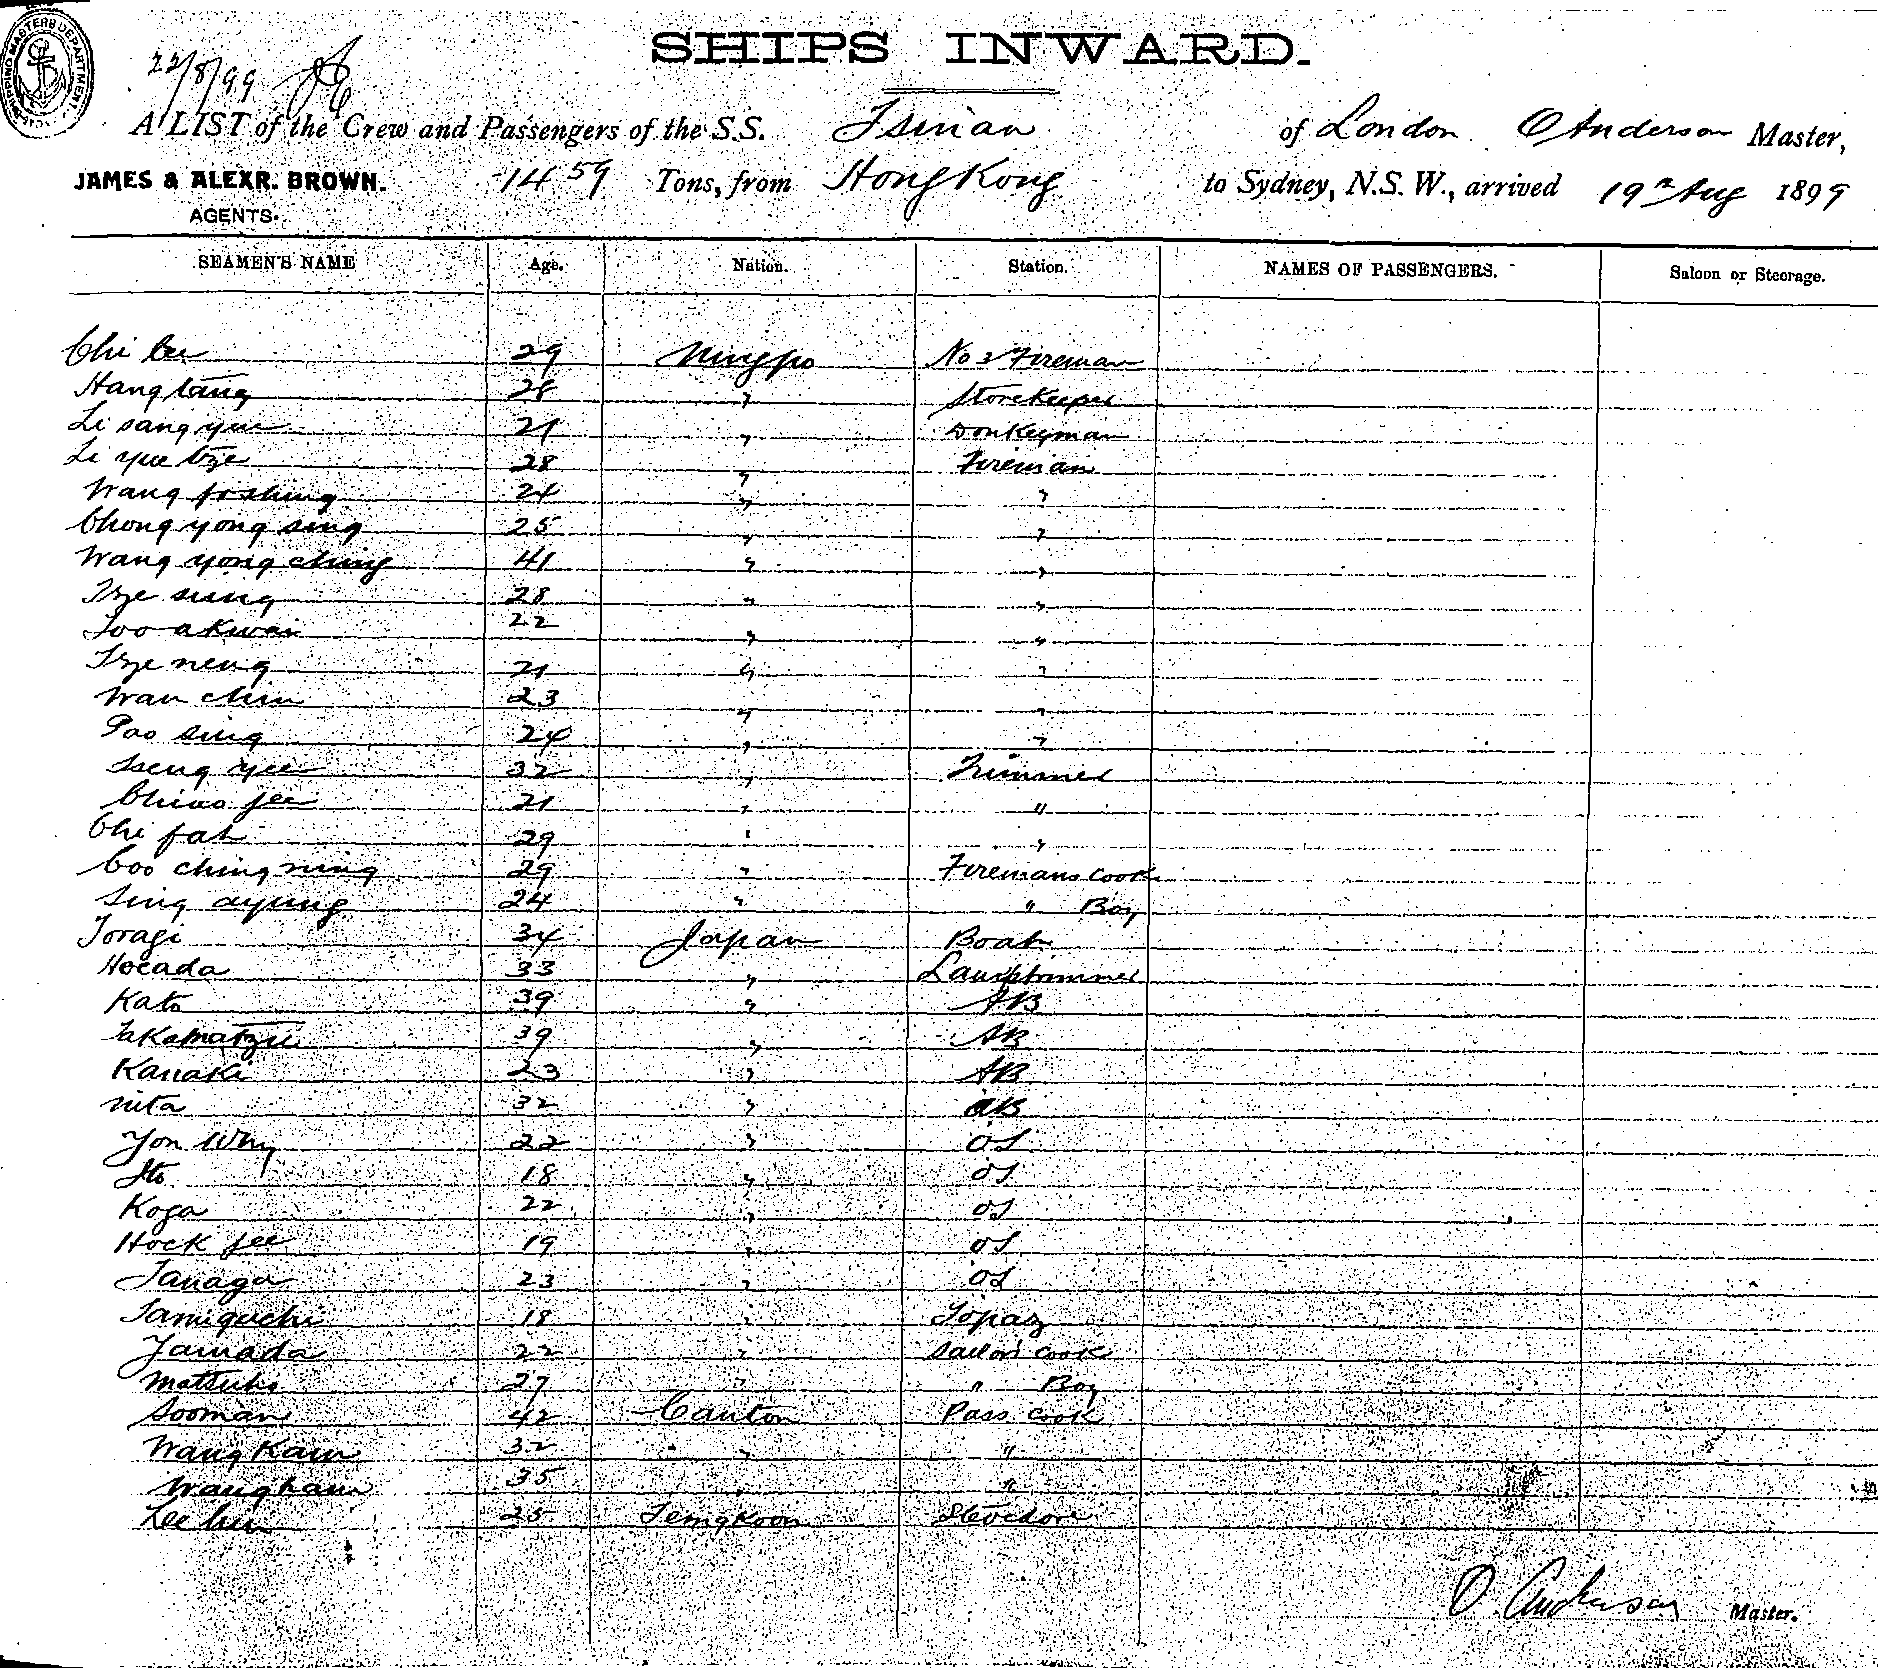 SHIPPING MASTERS DEPARTMENT
SHIPS INWARD.
22/8/99
A LIST of the Crew and Passengers of the S.S. Tsinan of London O Anderson Master,
JAMES & ALEXR. BROWN. 1459 Tons, from Hong Kong to Sydney, N.S.W., arrived 19th Aug 1899
AGENTS.
SEAMEN'S NAME Age. Nation. Station. NAMES OF PASSENGERS. Saloon or Steerage.
Chi 29 Ningpo No 2 Fireman
Hang tang 28 " Storekeeper
Li sang yue 21 " Donkeyman
Li yue tze 28 " Fireman
Wang foshing 24 " "
Chong yong sing 25 " "
Wang yong ching 41 " "
Tze sung 28 " "
Too akwai 22 " "
Tze neng 21 " "
Wan chin 23 " "
Pao sing 24 " "
Sseng yee 32 " Trimmer
Chiao fee 21 " "
Chi fah 29 " "
Coo ching ning 29 " Firemans cook
Sing ayung 24 " " Boy
Toragi 34 Japan Boats
Hocada 33 " Lamptrimmer
Kato 39 " AB
Takamatzu 39 " AB
Kanaki 23 " AB
Nita 32 " AB
Yon Why 22 " OS
Ito 18 " OS
Koga 22 " OS
Hock fee 19 " OS
Tanaga 23 " OS
Tamiguchi 18 " Topaz
Yamada 22 " Sailors cook
Matsuki 27 " " Boy
Sooman 42 Canton Pass cook
Wang Kam 32 " "
Wang ham 35 " "
Lee 25 Temgkoon Stevedore
O. Anderson Master.